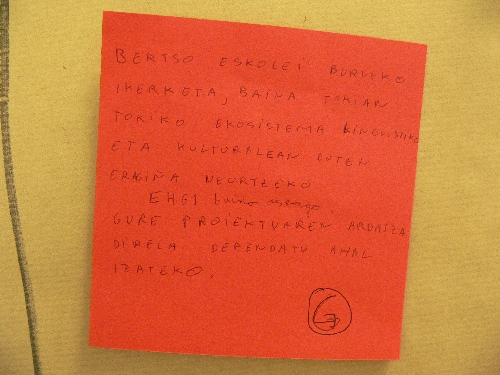 BERTSO ESKOLEI BURUZKO
IKERKETA, BAINA TOKIAN
TOKIKO EKOSISTEMA LINGUISTIKO
ETA KULTURALEAN DUTEN
ERAGINA NEURTZEKO
EHEI baino
GURE PROIEKTUAREN ARDATZA
DIRELA DEFENDATU AHAL
IZATEKO.
G